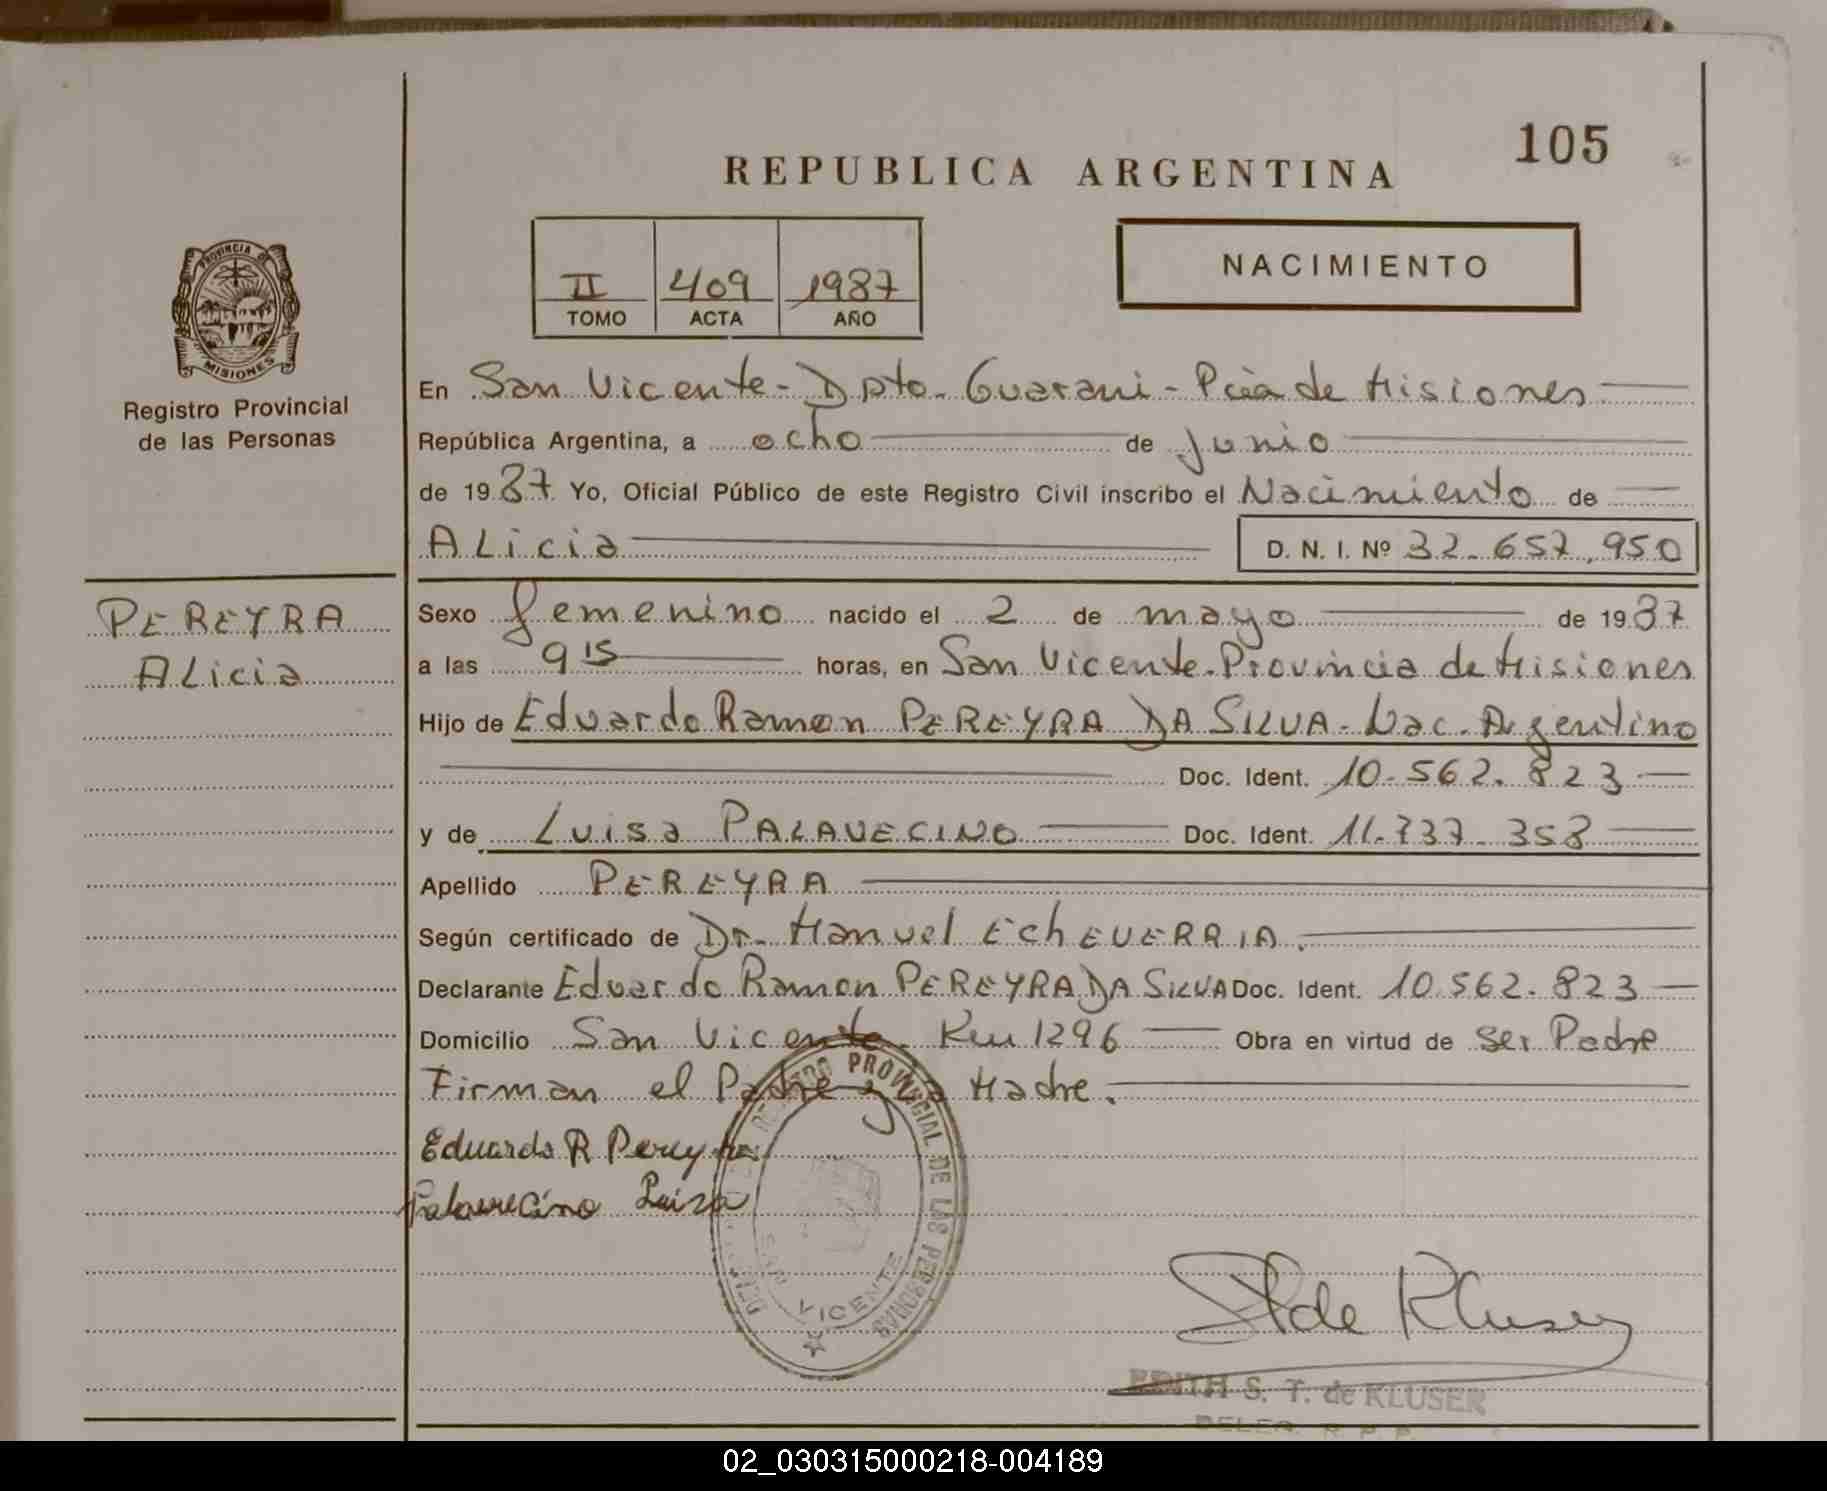 105
REPUBLICA ARGENTINA
II 409 1987
TOMO ACTA AÑO
NACIMIENTO
PROVINCIA DE
MISIONES
Registro Provincial
de las Personas
En San Vicente - Dpto. Guarani - Pcia de Misiones
República Argentina, a ocho de Junio
de 1987 Yo, Oficial Público de este Registro Civil inscribo el Nacimiento de
ALicia D. N. I. Nº 32.657.950
PEREYRA
ALicia
Sexo femenino nacido el 2 de mayo de 1987
a las 9 15 horas, en San Vicente. Provincia de Misiones
Hijo de Eduardo Ramon PEREYRA DA SILVA - Nac. Argentino
Doc. Ident. 10.562.823
y de Luisa PALAVECINO Doc. Ident. 11.737.358
Apellido PEREYRA
Según certificado de Dr. Manuel EchEVERRIA.
Declarante Eduardo Ramon PEREYRA DA SILVA Doc. Ident. 10.562.823
Domicilio San Vicente. Km 1296 Obra en virtud de ser Padre
Firman el Padre y la Madre.
Eduardo R Pereyra
Palavecino Luisa
REGISTRO PROVINCIAL DE LAS PERSONAS
SAN VICENTE
de Kluser
EDITH S. T. de KLUSER
DELEG. R. P. P.
02_030315000218-004189